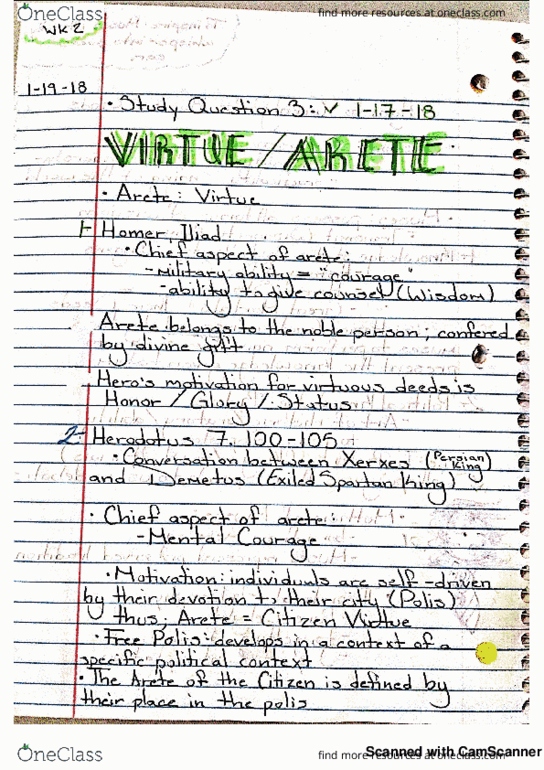 OneClass
find more resources at oneclass.com
Wk 2
1-19-18
• Study Question 3: ✓ 1-17-18
VIRTUE / ARETE
• Arete: Virtue
1- Homer Iliad
• Chief aspect of arete:
- Military ability = "courage"
- ability to give counsel (Wisdom)
Arete belongs to the noble person; confered
by divine gift
Hero's motivation for virtuous deeds is
Honor / Glory / Status
2. Herodotus 7. 100-105
• Conversation between Xerxes (Persian King)
and Demetus (Exiled Spartan King)
• Chief aspect of arete:
- Mental Courage
• Motivation: individuals are self-driven
by their devotion to their city (Polis)
thus; Arete = Citizen Virtue
• Free Polis: develops in a context of a
specific political context
• The Arete of the Citizen is defined by
their place in the polis
OneClass
find more resources at oneclass.com
Scanned with CamScanner